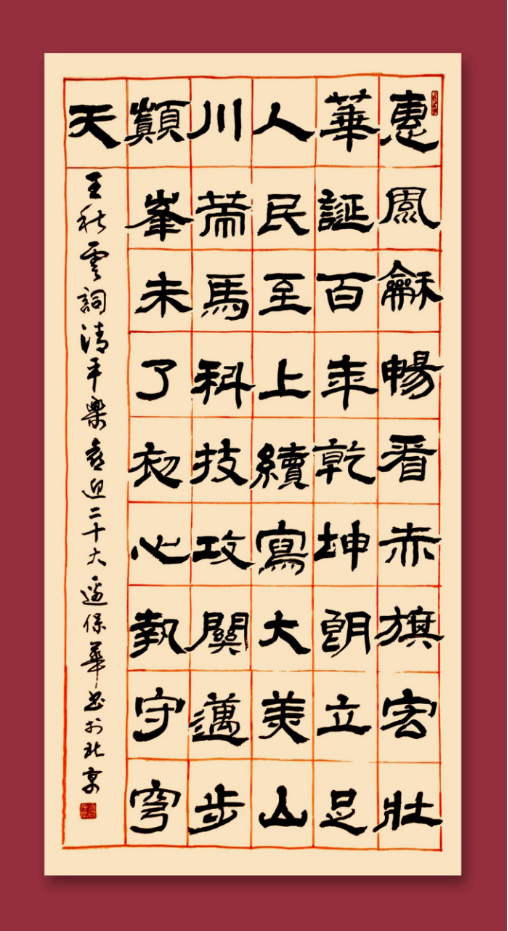 惠風龢暢看赤旗宏壯
華誕百年乾坤朗立足
人民至上續寫大美山
川策馬科技攻關邁步
巔峯未了初心執守穹
天
王秋雲詞清平樂喜迎二十大逯保華书於北京